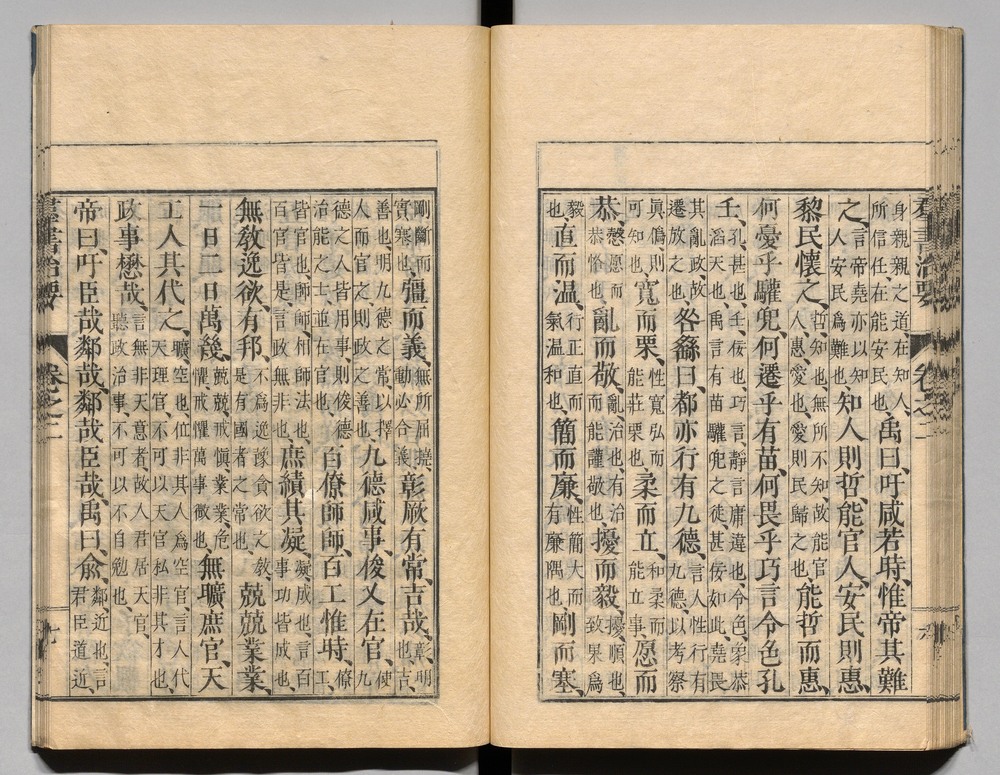 羣書治要 卷之二 六
身親親之道、在知人、所信任、在能安民也、禹曰、吁咸若時、惟帝其難
之、言帝堯亦以知人安民爲難也、知人則哲、能官人、安民則惠、
黎民懷之、哲知也、無所不知、故能官人、惠愛也、愛則民歸之也、能哲而惠、
何憂乎驩兜何遷乎有苗、何畏乎巧言令色孔
壬、孔甚也、壬佞也、巧言、靜言庸違也、令色、象恭滔天也、禹言有苗驩兜之徒、甚佞如此、堯畏
其亂政、故遷放之也、咎繇曰、都亦行有九德、言人性行有九德、以考察
眞僞則可知也、寬而栗、性寬弘而能莊栗也、柔而立、和柔而能立事、愿而
恭、愨愿而恭恪也、亂而敬、亂治也、有治而能謹敬也、擾而毅、擾順也、致果爲
毅也、直而温、行正直而氣温和也、簡而廉、性簡大而有廉隅也、剛而塞、
剛斷而實塞也、彊而義、無所屈撓、動必合義、彰厥有常、吉哉、彰明也、吉
善也、明九德之常、以擇人而官之、則政之善也、九德咸事、俊乂在官、使九
德之人皆用事、則俊德治能之士、並在官也、百僚師師、百工惟時、僚工、
皆官也、師師、相師法也、百官皆是、言政無非也、庶績其凝、凝成也、言百事功皆成也、
無敎逸欲、有邦、不爲逸豫貪欲之敎、是有國者之常也、兢兢業業、
一日二日萬幾、兢兢戒愼、業業危懼、戒懼萬事微也、無曠庶官、天
工人其代之、曠空也、位非其人爲空官、言人代天理官、不可以天官私非其才也、
政事懋哉、言無非天意者、故人君居天官、聽政治事、不可以不自勉也、
帝曰、吁臣哉鄰哉、鄰哉臣哉、禹曰、兪、鄰近也、言君臣道近、
羣書治要 卷之二 七